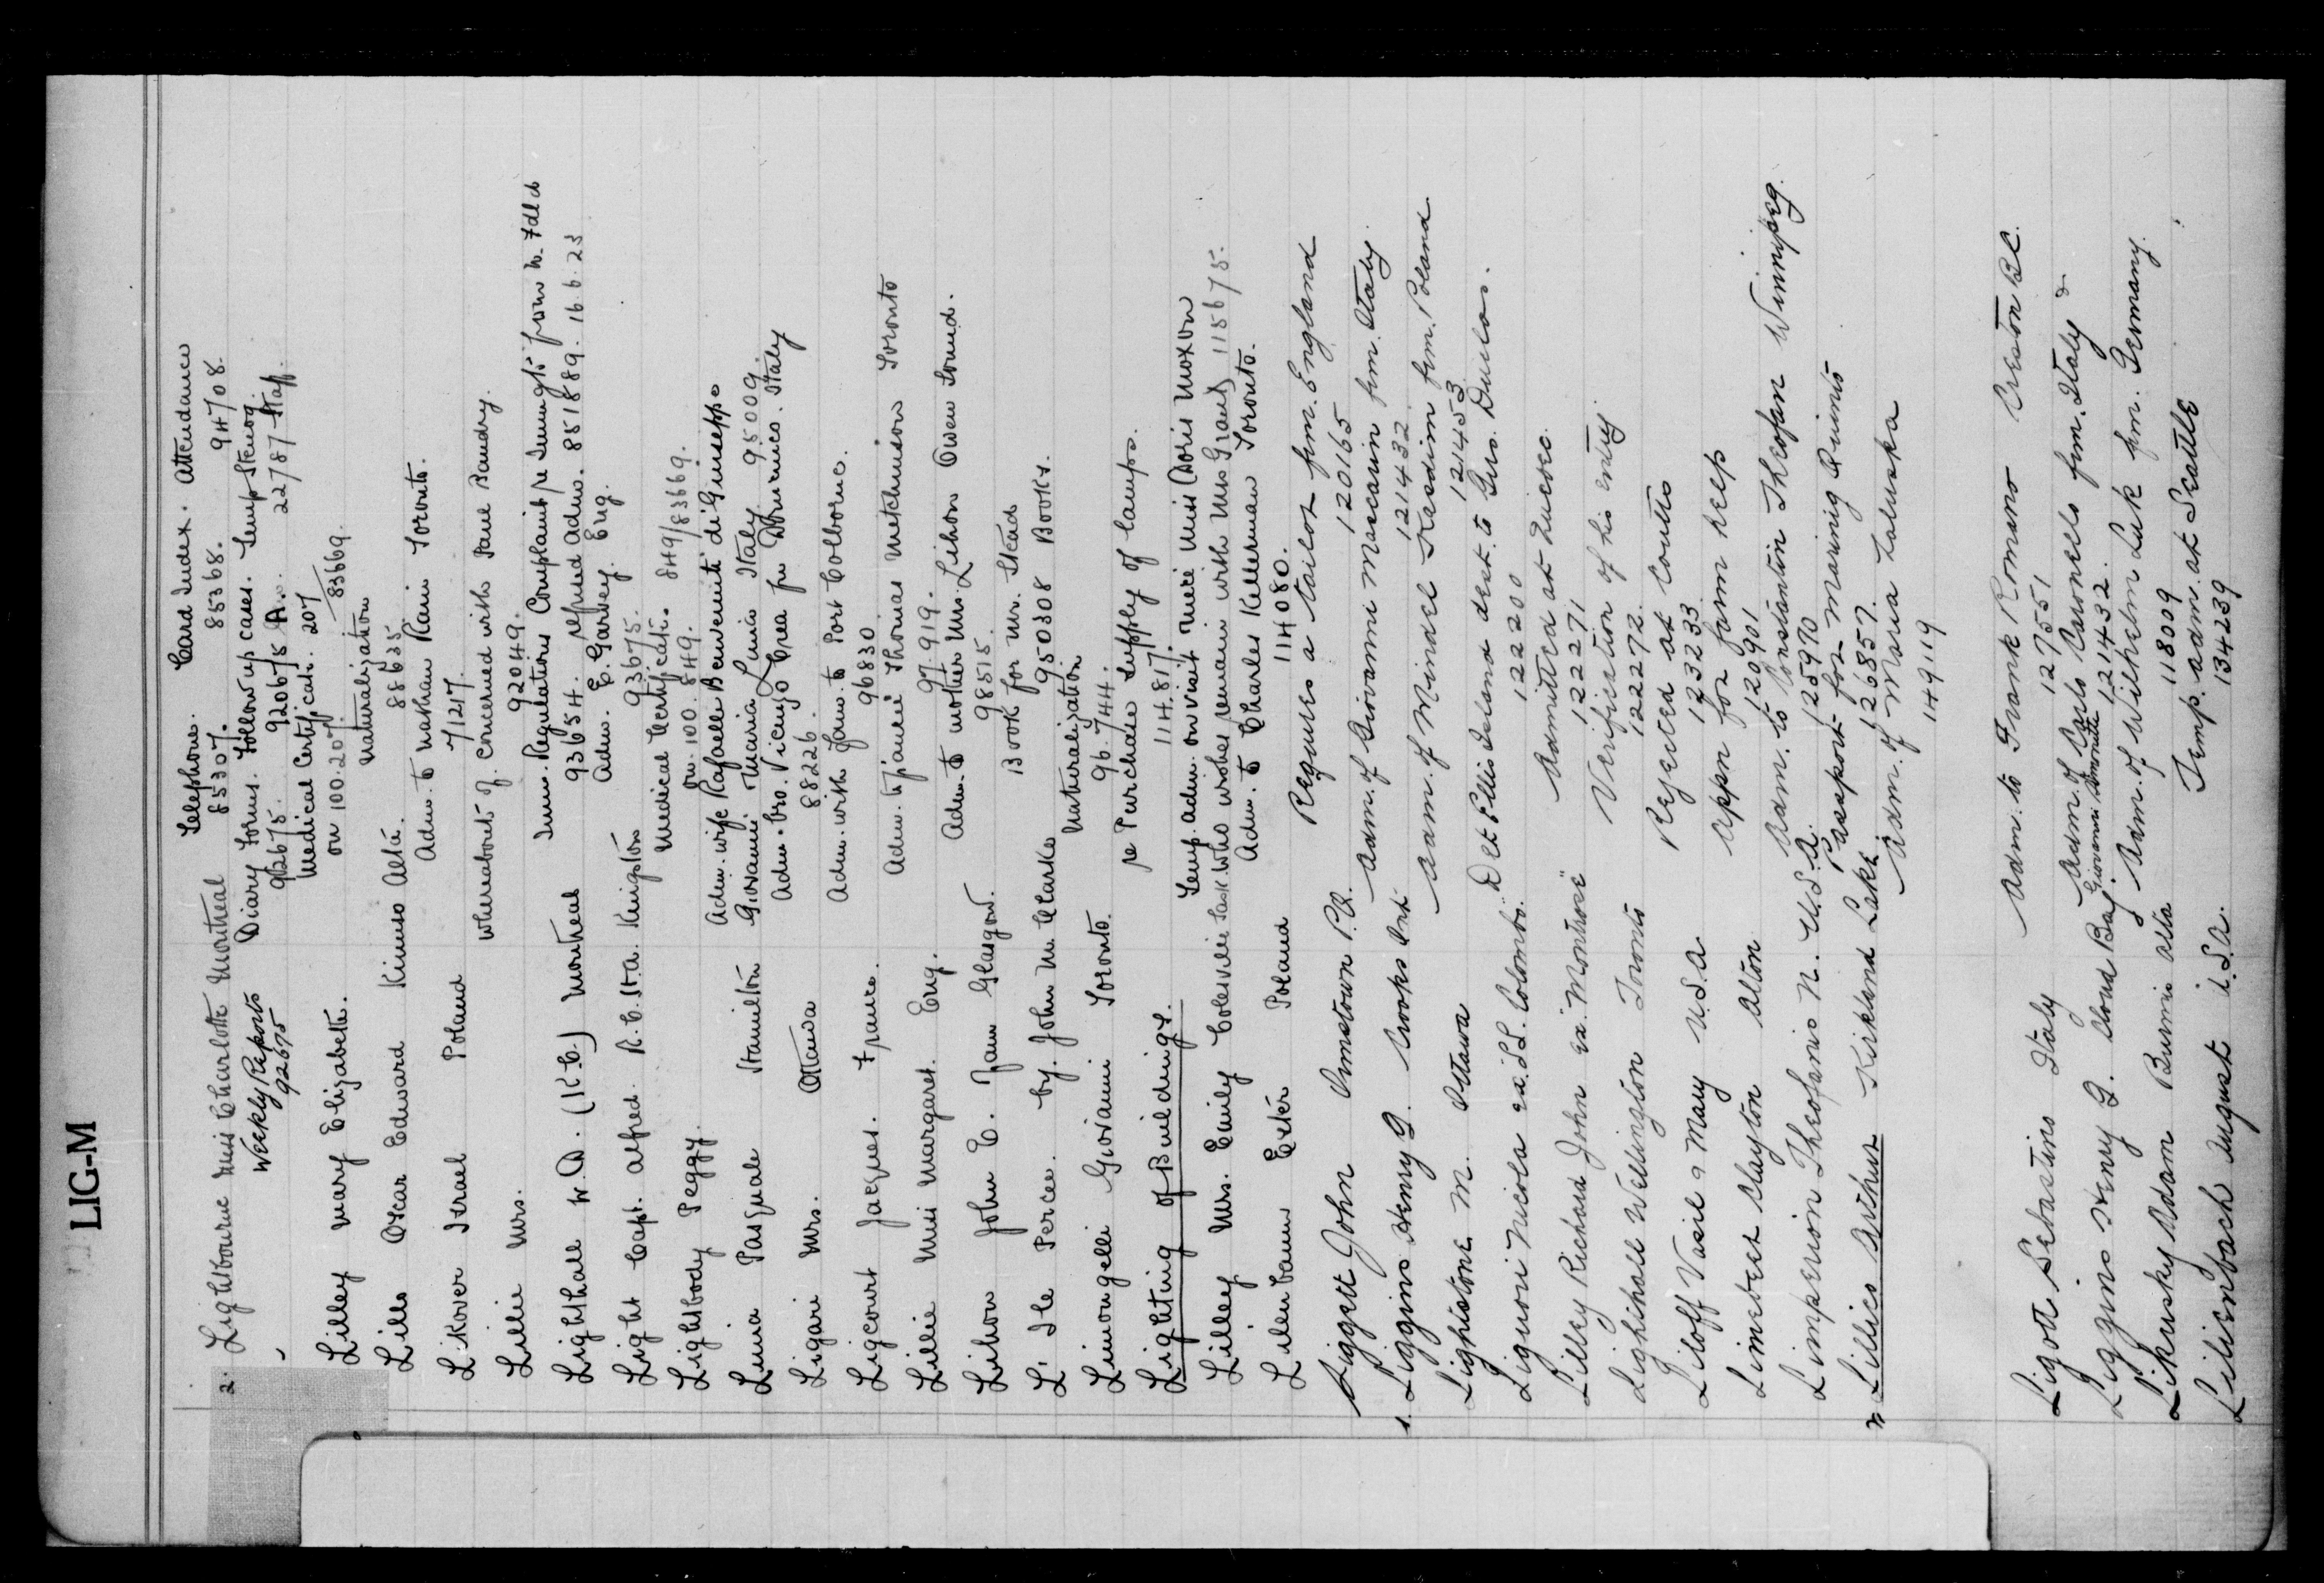 LIG-M
Telephone. Card Index. Attendance
2. Lightbourne Miss Charlotte Montreal 85307. 85368. 94708.
Weekly Reports Diary Forms. Follow up cases. Temp Stenog.
92675 92675. 92675 A. 22787-Staff.
Medical Certificate. 207
Lilley Mary Elizabeth. on 100.207. 83669.
Naturalization
Lills Oscar Edward Kinuso Alta. 88635
Adm. to Nathan Rain Toronto.
Likover Israel Poland 7127.
Whereabouts of. Concerned with Paul Baudry.
Lillie Mrs. 92049.
Imm. Regulations Complaint re
Lighthall W.D. (K.C.) Montreal 93654. refused Adm. 851889. 16.6.23
Adm. E. Garvey. Eng.
Light Capt. Alfred. R.C.H.A. Kingston 93675.
Medical Certificate. 849/83669.
Lightbody Peggy. on. 100. 849.
Adm. wife Rafaella Benvenuti di Giuseppe
Lunia Pasquale Hamilton Giovanni Maria Lunia Italy 95009.
Adm. bro. Vicenzo Crea fm Italy
Ligari Mrs. Ottawa 88226.
Adm. with fam. to Port Colborne.
Ligcourt Jacques. France. 96830
Adm. to fiancé Thomas Metchinson Toronto
Lillie Miss Margaret. Eng. 97919.
Adm. to mother Mrs. Lihon Owen Sound.
Lihon John C. Jam Glasgow. 98515.
Book for Mr. Stead
L. Ile Percee. by. John M. Clarke 950308 Books.
Naturalization
Limongelli Giovanni Toronto. 96.744.
re Purchase Supply of lamps.
Lighting of Buildings. 114.817.
Temp. adm. on visit niece Miss Doris Moxon
Lilley Mrs. Emily Colesville Sask. Who wishes remain with Mrs Grant 115675.
Adm. to Charles Kellerman Toronto.
Lilenbaum Ester Poland 114080.
Requires a tailor fm. England
Liggett John Ormstown P.Q. 120165
Adm. of Giovanni Mascarin fm. Italy.
1. Liggins Henry G. Crooks Ont 121432.
Adm. of Mindel Hasdim fm. Poland
Lightstone M. Ottawa 121453
Det Ellis Island dest. to Gus. Duclos.
Liguori Nicola ex. SS. Colombo. 122200
Admitted at Quebec.
Lilley Richard John ex. "Montrose" 122271
Verification of his entry.
Lighthall Wellington Toronto 122272.
Rejected at Coutts
Liloff Vasil & Mary U.S.A. 123233.
Appn for farm help
Limebeer Clayton Alton 120901
Adm. to Constantin Theofan Winnipeg.
Limperion Theofanis N. U.S.A. 125970
Passport for
Lillico Arthur Kirkland Lake 126857.
Adm. of Maria Laluska
149119
Adm. to Frank Romano Creston B.C.
Ligott Sebastino Italy 127551
Adm. of Carlo Caronello fm. Italy &
Liggins Henry G. Cloud Bay Giovanni 121432.
Adm. of Wilhelm Luk fm. Germany.
Likusky Adam Burmis Alta 118009
Temp. adm. at Seattle
Lilienbach August U.S.A. 134239